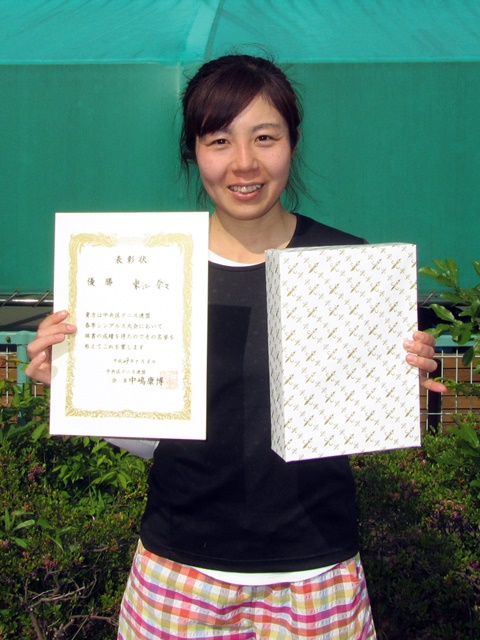 表彰状
優勝
貴方は中央区テニス連盟
春季シングルス大会において
頭書の成績を得たのでその名誉を
称えてこれを賞します
中央区テニス連盟
会長 中嶋康博